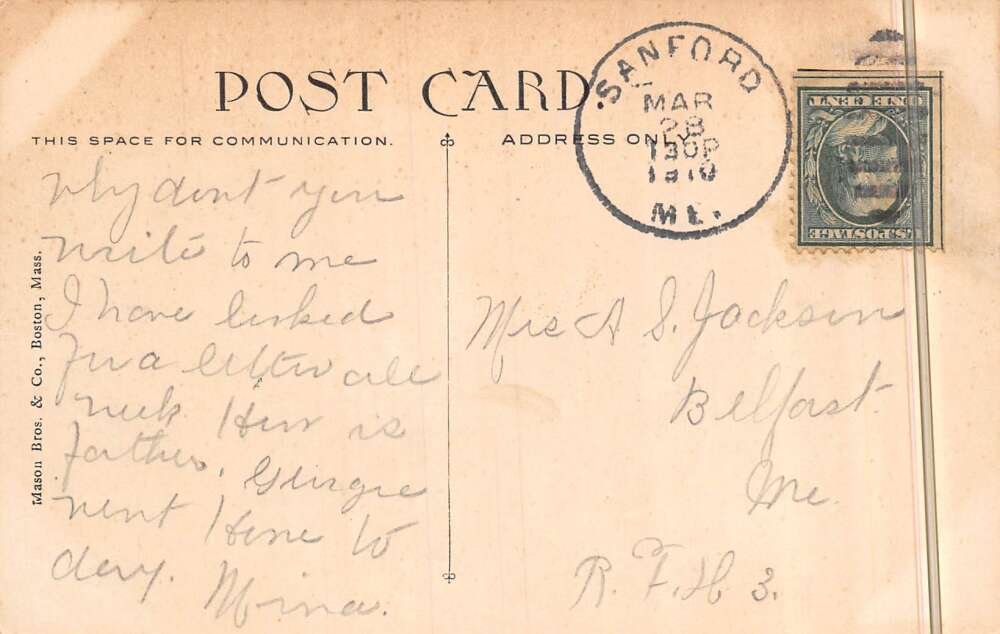 POST CARD.
THIS SPACE FOR COMMUNICATION.
ADDRESS ONLY
SANFORD
MAR
28
130P
1910
ME.
ONE CENT
U.S. POSTAGE
Why dont you
write to me
I have looked
for a letter all
week How is
father. Georgie
went Home to
day. Mina.
Mrs A S. Jackson
Belfast.
Me.
R. F. H 3.
Mason Bros. & Co., Boston, Mass.